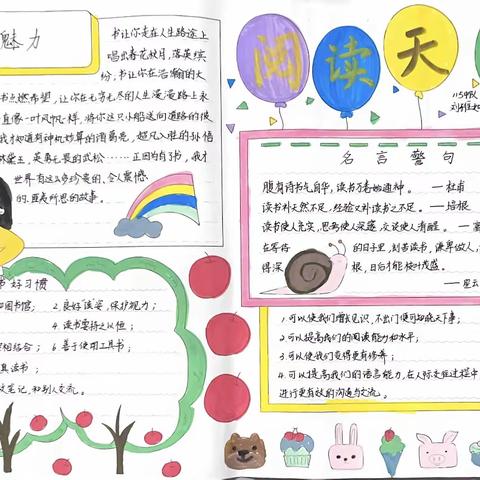 魅力
书让你走在人生路途上
唱出春花秋月,落英缤
纷,书让你在浩瀚的大
书点燃希望,让你在无穷无尽的人生漫漫路上永
直像一叶风帆一样,将你这只小船送向道路的彼
我才知道有神机妙算的诸葛亮,超凡入胜的孙悟
林黛玉,英勇无畏的武松……正因为有书,我才
世界有这么多珍贵的、令人震憾
的、匪夷所思的故事。
书好习惯
图书馆;
2.良好读姿,保护视力;
4.读书要持之以恒;
相结合;
6.善于使用工具书;
具读书;
笔记,和别人交流。
阅读天
名言警句
腹有诗书气自华,读书万卷始通神。——杜甫
读书补天然不足,经验又补读书之不足。——培根
读书使人充实,思考使人深邃,交谈使人清醒。——富
在等待
的日子里,刻苦读书,谦卑做人,
得深
根,日后才能枝叶茂盛。
——星云
1.可以使我们增长见识,不出门便可知晓天下事;
2.可以提高我们的阅读能力和水平;
3.可以使我们变得更有修养;
4.可以提高我们的语言能力,在人际交往过程中
进行更有效的沟通与交流。